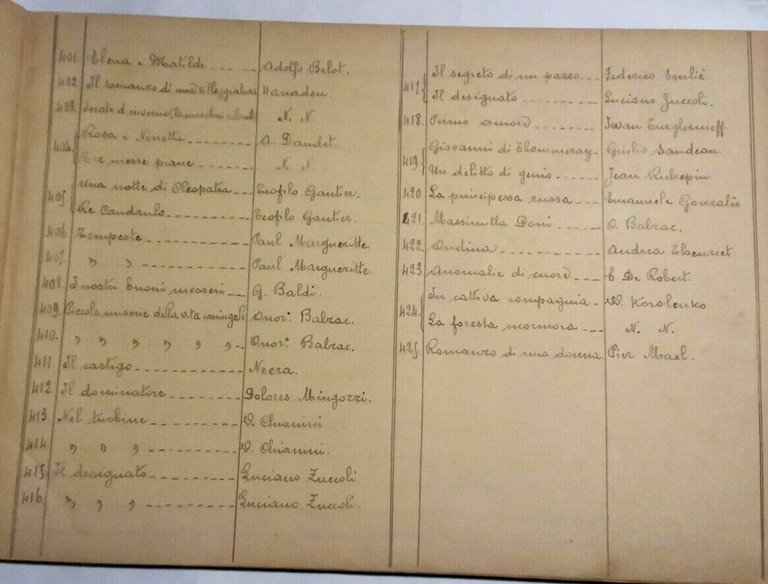 401. Elena e Matilde ---- Adolfo Belot.
402. Il romanzo di una villeggiatura Hanaden.
403. Serate d'inverno N. N.
Rosa e Ninetta --- A. Daudet.
404.
Tre messe piane --- N. N
Una notte di Cleopatra --- Teofilo Gautier.
405.
Re Candaulo --- Teofilo Gautier.
406 Tempeste --- Paul Margueritte.
407. " " --- Paul Margueritte.
408. I nostri buoni messeri -- G. Baldi.
409. Piccole miserie della vita coniugale Onor: Balzac.
410. " " " " " " -- Onor: Balzac.
411 Il castigo --- Neera.
412 Il dominatore --- Dolores Mingozzi.
413. Nel turbine --- V. Chianini
414. " " " --- V. Chianini.
415 Il designato --- Luciano Zuccoli.
416. " " " --- Luciano Zuccoli.
Il segreto di un pazzo --- Federico Soulié
417
Il designato --- Luciano Zuccoli.
418. Primo amore --- Iwan Turgheneff
Giovanni di Thommeray - Giulio Sandeau.
419
Un delitto di genio --- Jean Richepin
420 La principessa russa --- Emanuele Gonzalès
421. Massimilla Doni --- O. Balzac.
422. Ondina --- Andrea Theuriet
423. Anomalie di cuore -- De Robert.
In cattiva compagnia -- W. Korolenko
424.
La foresta mormora --- N. N.
425. Romanzo di una donna. Pier Mael.